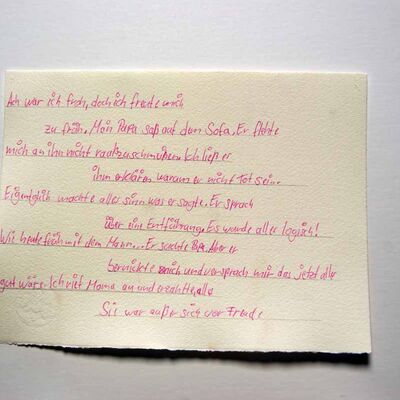 Ach war ich froh, doch ich freute mich
zu früh. Mein Papa saß auf dem Sofa. Er flehte
mich an ihn nicht rauszuschmeißen. Ich ließ er
ihm erklären warum er nicht Tot sein..
Eigentlich machte alles sinn was er sagte. Er sprach
über eine Entführung. Es wurde alles logisch!
Wie heute früh mit dem Mann... Er suchte Papa. Aber er
mich und versprach mir das jetzt alles
gut wäre. Ich rief Mama an und alles
Sie war außer sich vor Freude